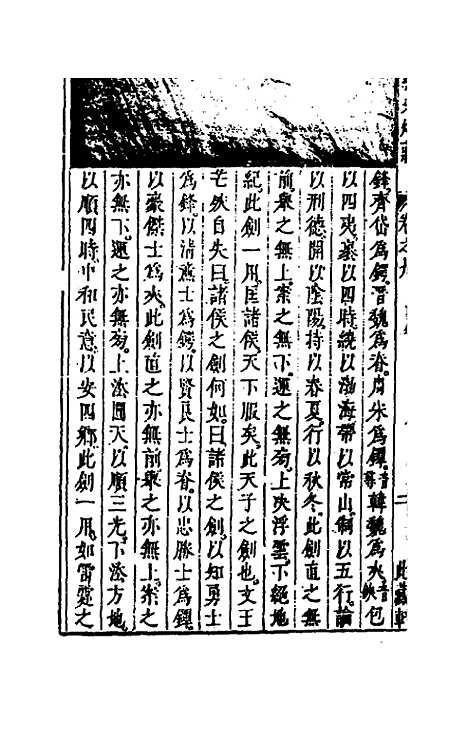 鋒齊岱為鍔晉魏為脊周宋為鐔音尋韓魏為夾音鋏包
以四夷褁以四時繞以渤海帶以常山制以五行論
以刑德開以陰陽持以春夏行以秋冬此劍直之無
前舉之無上案之無下運之無旁上決浮雲下絕地
紀此劍一用匡諸侯天下服矣此天子之劍也文王
芒然自失曰諸侯之劍何如曰諸侯之劍以知勇士
為鋒以清亷士為鍔以賢良士為脊以忠勝士為鐔
以豪傑士為夾此劍直之亦無前舉之亦無上案之
亦無下運之亦無旁上法圓天以順三光下法方地
以順四時中和民意以安四鄉此劍一用如雷霆之